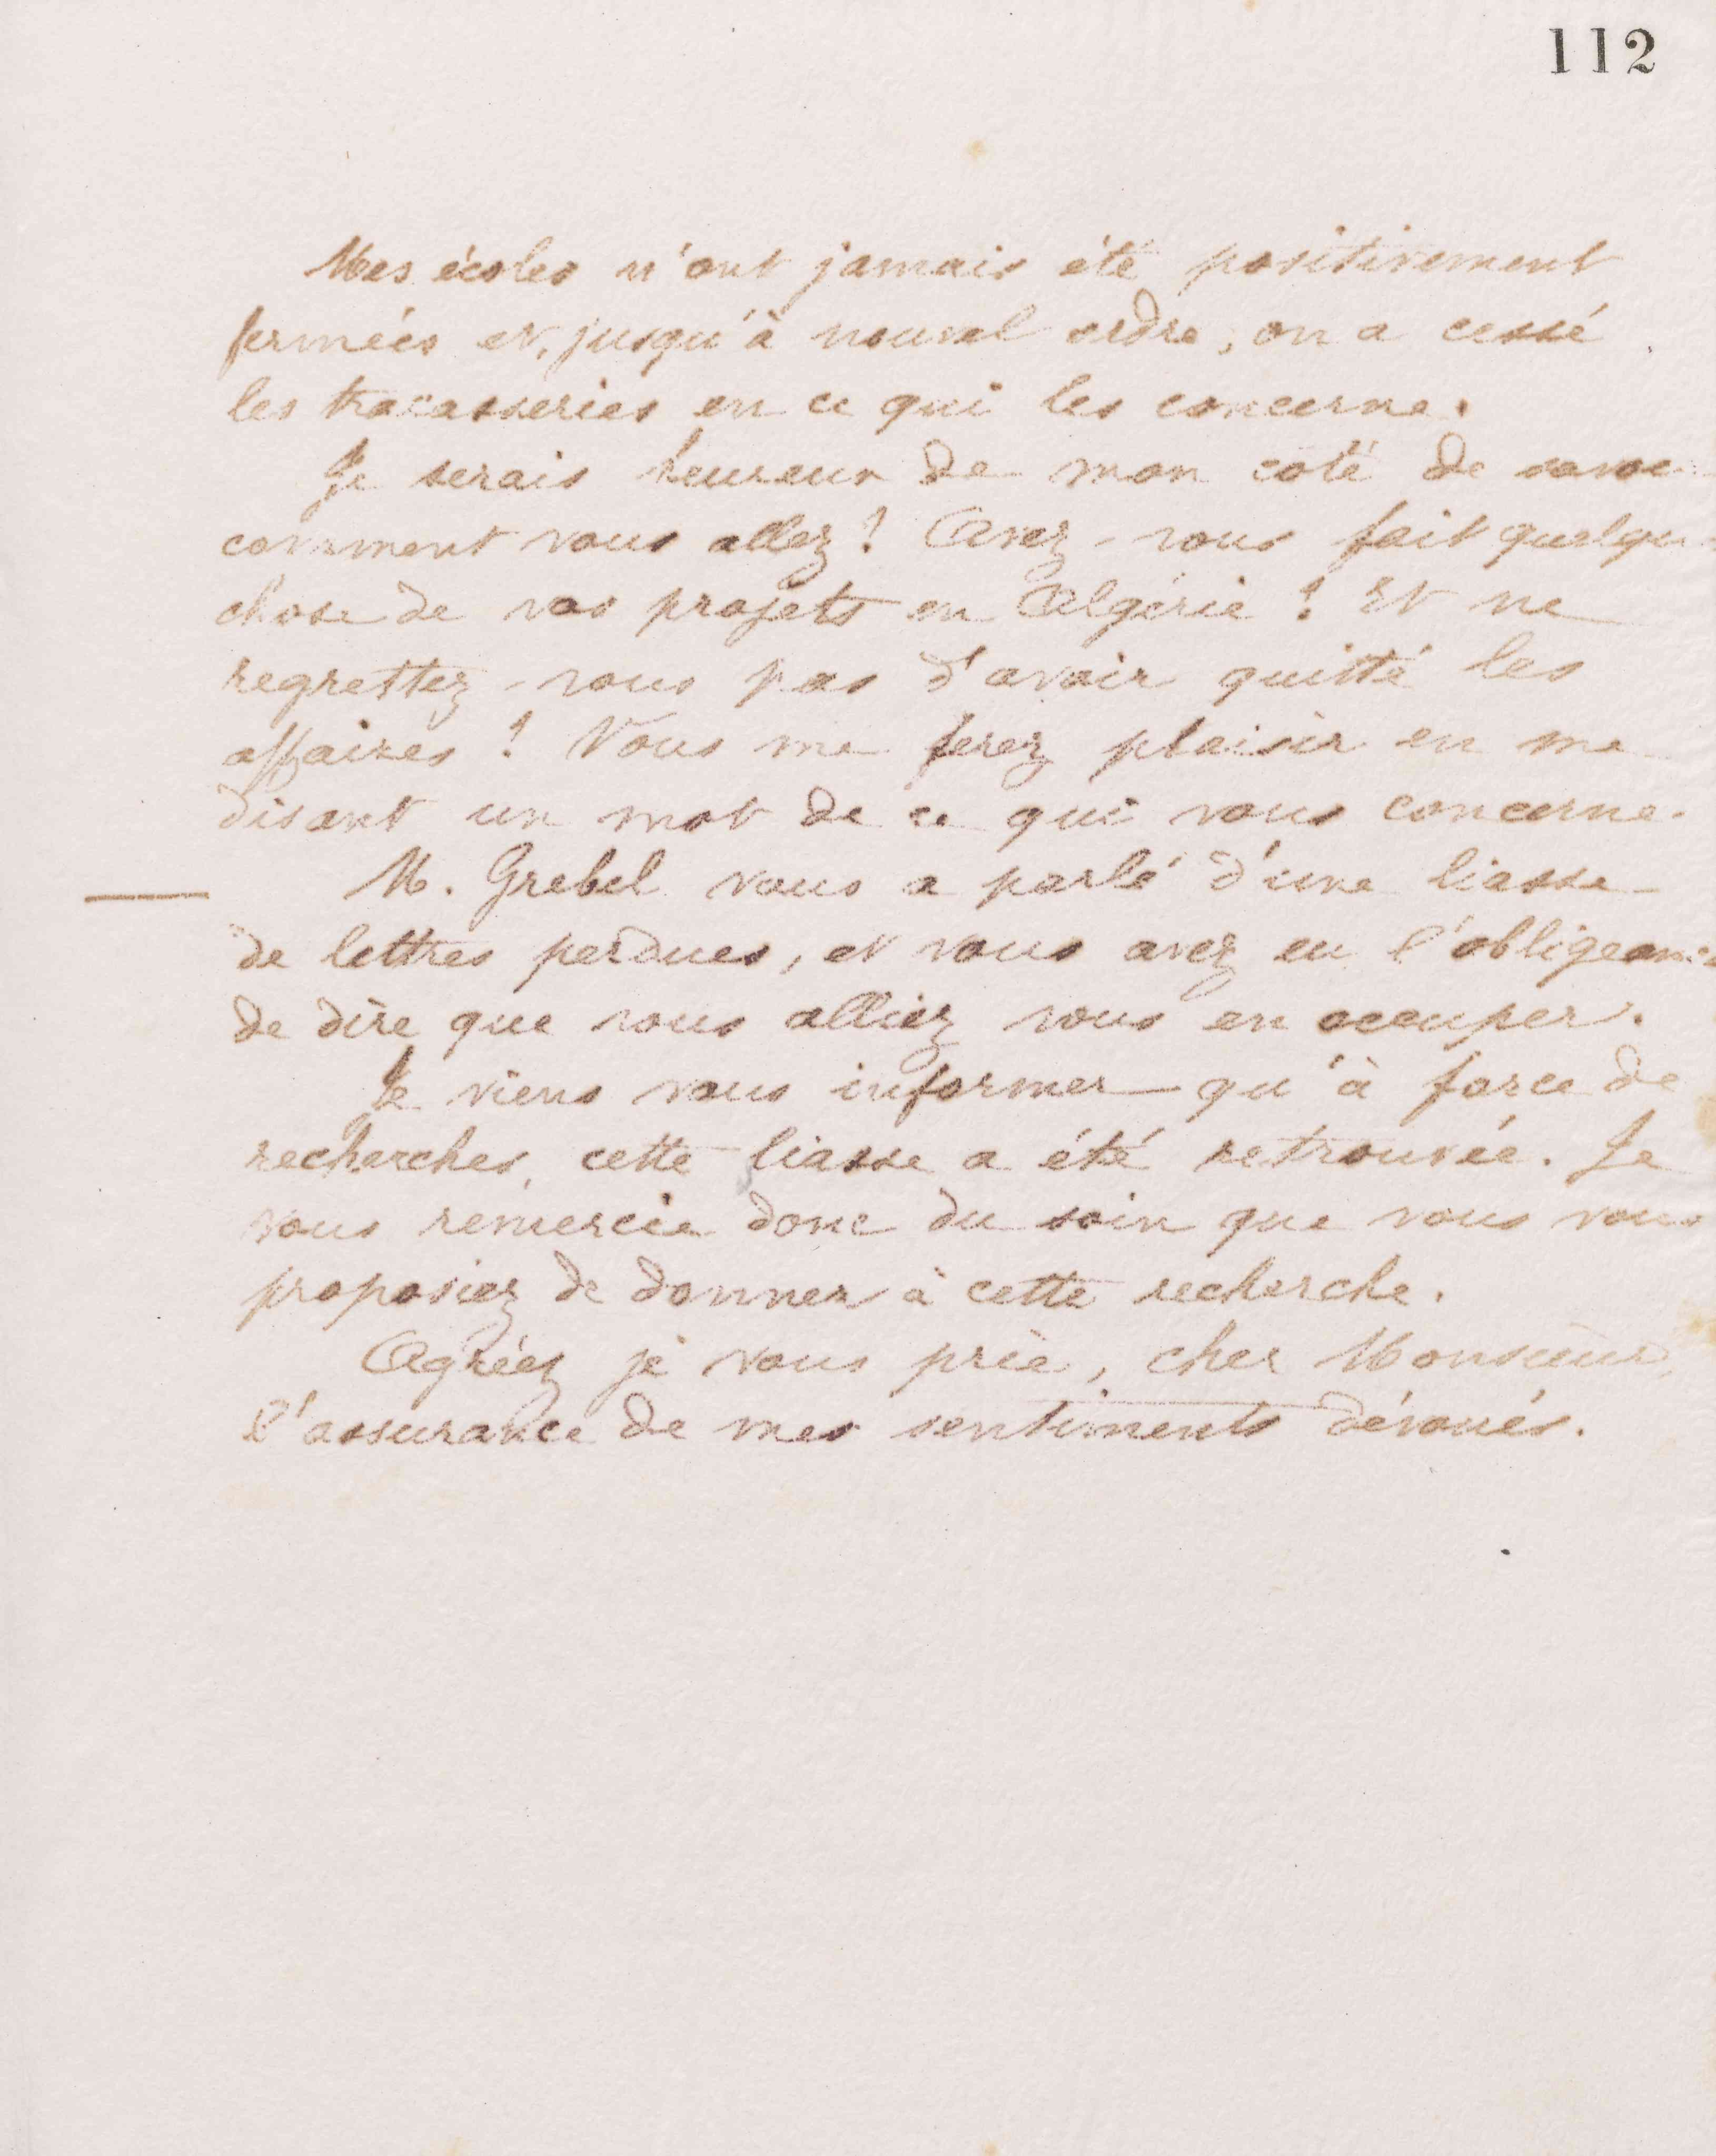 112
Mes écoles n'ont jamais été positivement
fermées et, jusqu'à nouvel ordre, on a cessé
les tracasseries en ce qui les concerne.
Je serais heureux de mon coté de savoi
comment vous allez ? Avez-vous fait quelque
chose de vos projets en Algérie ? Et ne
regrettez-vous pas d'avoir quitté les
affaires ? Vous me ferez plaisir en me
disant un mot de ce qui vous concerne.
M. Grebel vous a parlé d'une liasse
de lettres perdues, et vous avez eu l'obligeance
de dire que vous alliez vous en occuper.
Je viens vous informer qu'à force de
recherches, cette liasse a été retrouvée. Je
vous remercie donc du soin que vous vous
proposiez de donner à cette recherche.
Agréez je vous prie, cher Monsieur,
l'assurance de mes sentiments dévoués.